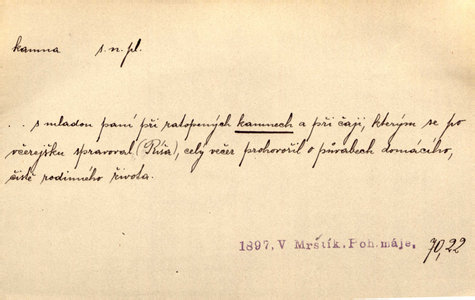 kamna s. n. pl.
. . s mladou paní při zatopených kamnech a při čaji, kterým se po
včerejšku spravoval (Říša), celý večer prohovořil o půvabech domácího,
čistě rodinného života.
1897, V Mrštík. Poh. máje. 70,22